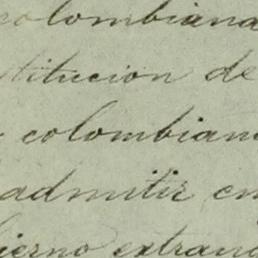 colombiana
titucion de
colombian
admitir em
bierno extran